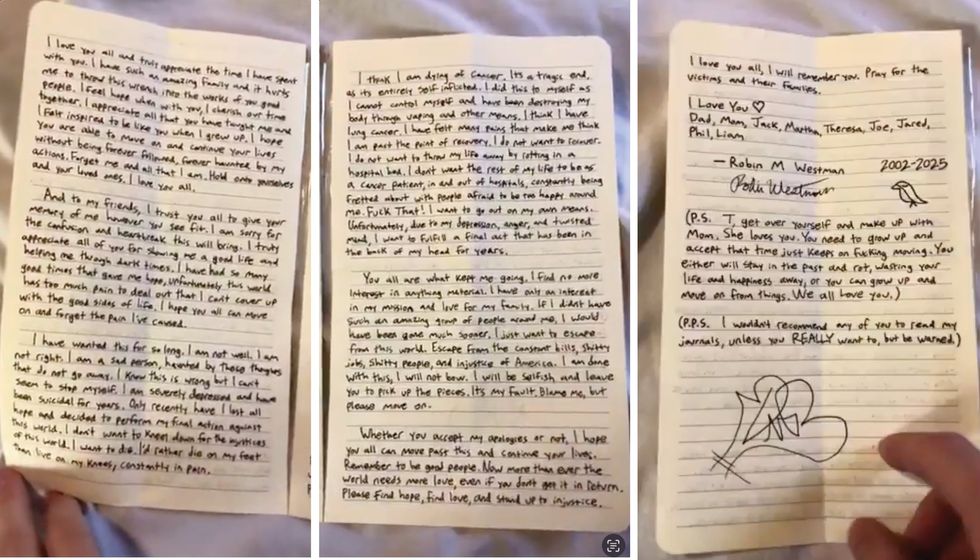 I love you all and truly appreciate the time I have spent
with you. I have such an amazing family and it hurts
me to throw this wrench into the works of you good
people. I feel hope when with you, I cherish our time
together. I appreciate all that you have taught me and
I felt inspired to be like you when I grew up. I hope
you are able to move on and continue your lives
without being forever followed, forever haunted by my
actions. Forget me and all that I am. Hold onto yourselves
and your loved ones. I love you all.
And to my friends, I trust you all to give your
memory of me however you see fit. I am sorry for
the confusion and heartbreak this will bring. I truly
appreciate all of you for showing me a good life and
helping me through dark times. I have had so many
good times that gave me hope, unfortunately this world
has too much pain to deal out that I can't cover up
with the good sides of life. I hope you all can move
on and forget the pain I've caused.
I have wanted this for so long. I am not well. I am
not right. I am a sad person, haunted by these thoughts
that do not go away. I know this is wrong but I can't
seem to stop myself. I am severely depressed and have
been suicidal for years. Only recently have I lost all
hope and decided to perform my final action against
this world. I don't want to kneel down for the injustices
of this world. I want to die. I'd rather die on my feet
than live on my knees, constantly in pain.
I think I am dying of cancer. Its a tragic end,
as its entirely self inflicted. I did this to myself as
I cannot control myself and have been destroying my
body through vaping and other means. I think I have
lung cancer. I have felt many pains that make me think
I am past the point of recovery. I do not want to recover.
I do not want to throw my life away by rotting in a
hospital bed. I don't want the rest of my life to be as
a cancer patient, in and out of hospitals, constantly being
fretted about with people afraid to be too happy around
me. Fuck That! I want to go out on my own means.
Unfortunately, due to my depression, anger, and twisted
mind, I want to fulfill a final act that has been in
the back of my head for years.
You all are what kept me going. I find no more
interest in anything material. I have only an interest
in my mission and love for my family. If I didn't have
such an amazing group of people around me, I would
have been gone much sooner. I just want to escape
from this world. Escape from the constant bills, shitty
jobs, shitty people, and injustice of America. I am done
with this, I will not bow. I will be selfish and leave
you to pick up the pieces. Its my fault. Blame me, but
please move on.
Whether you accept my apologies or not, I hope
you all can move past this and continue your lives.
Remember to be good people. Now more than ever the
world needs more love, even if you don't get it in return.
Please find hope, find love, and stand up to injustice.
I love you all, I will remember you. Pray for the
victims and their families.
I Love You ♡
Dad, Mom, Jack, Martha, Theresa, Joe, Jared,
Phil, Liam,
— Robin M Westman 2002-2025
Robin Westman
(P.S. T, get over yourself and make up with
Mom. She loves you. You need to grow up and
accept that time just keeps on fucking moving. You
either will stay in the past and rot, wasting your
life and happiness away, or you can grow up and
move on from things. We all love you.)
(P.P.S. I wouldn't recommend any of you to read my
journals, unless you REALLY want to, but be warned.)